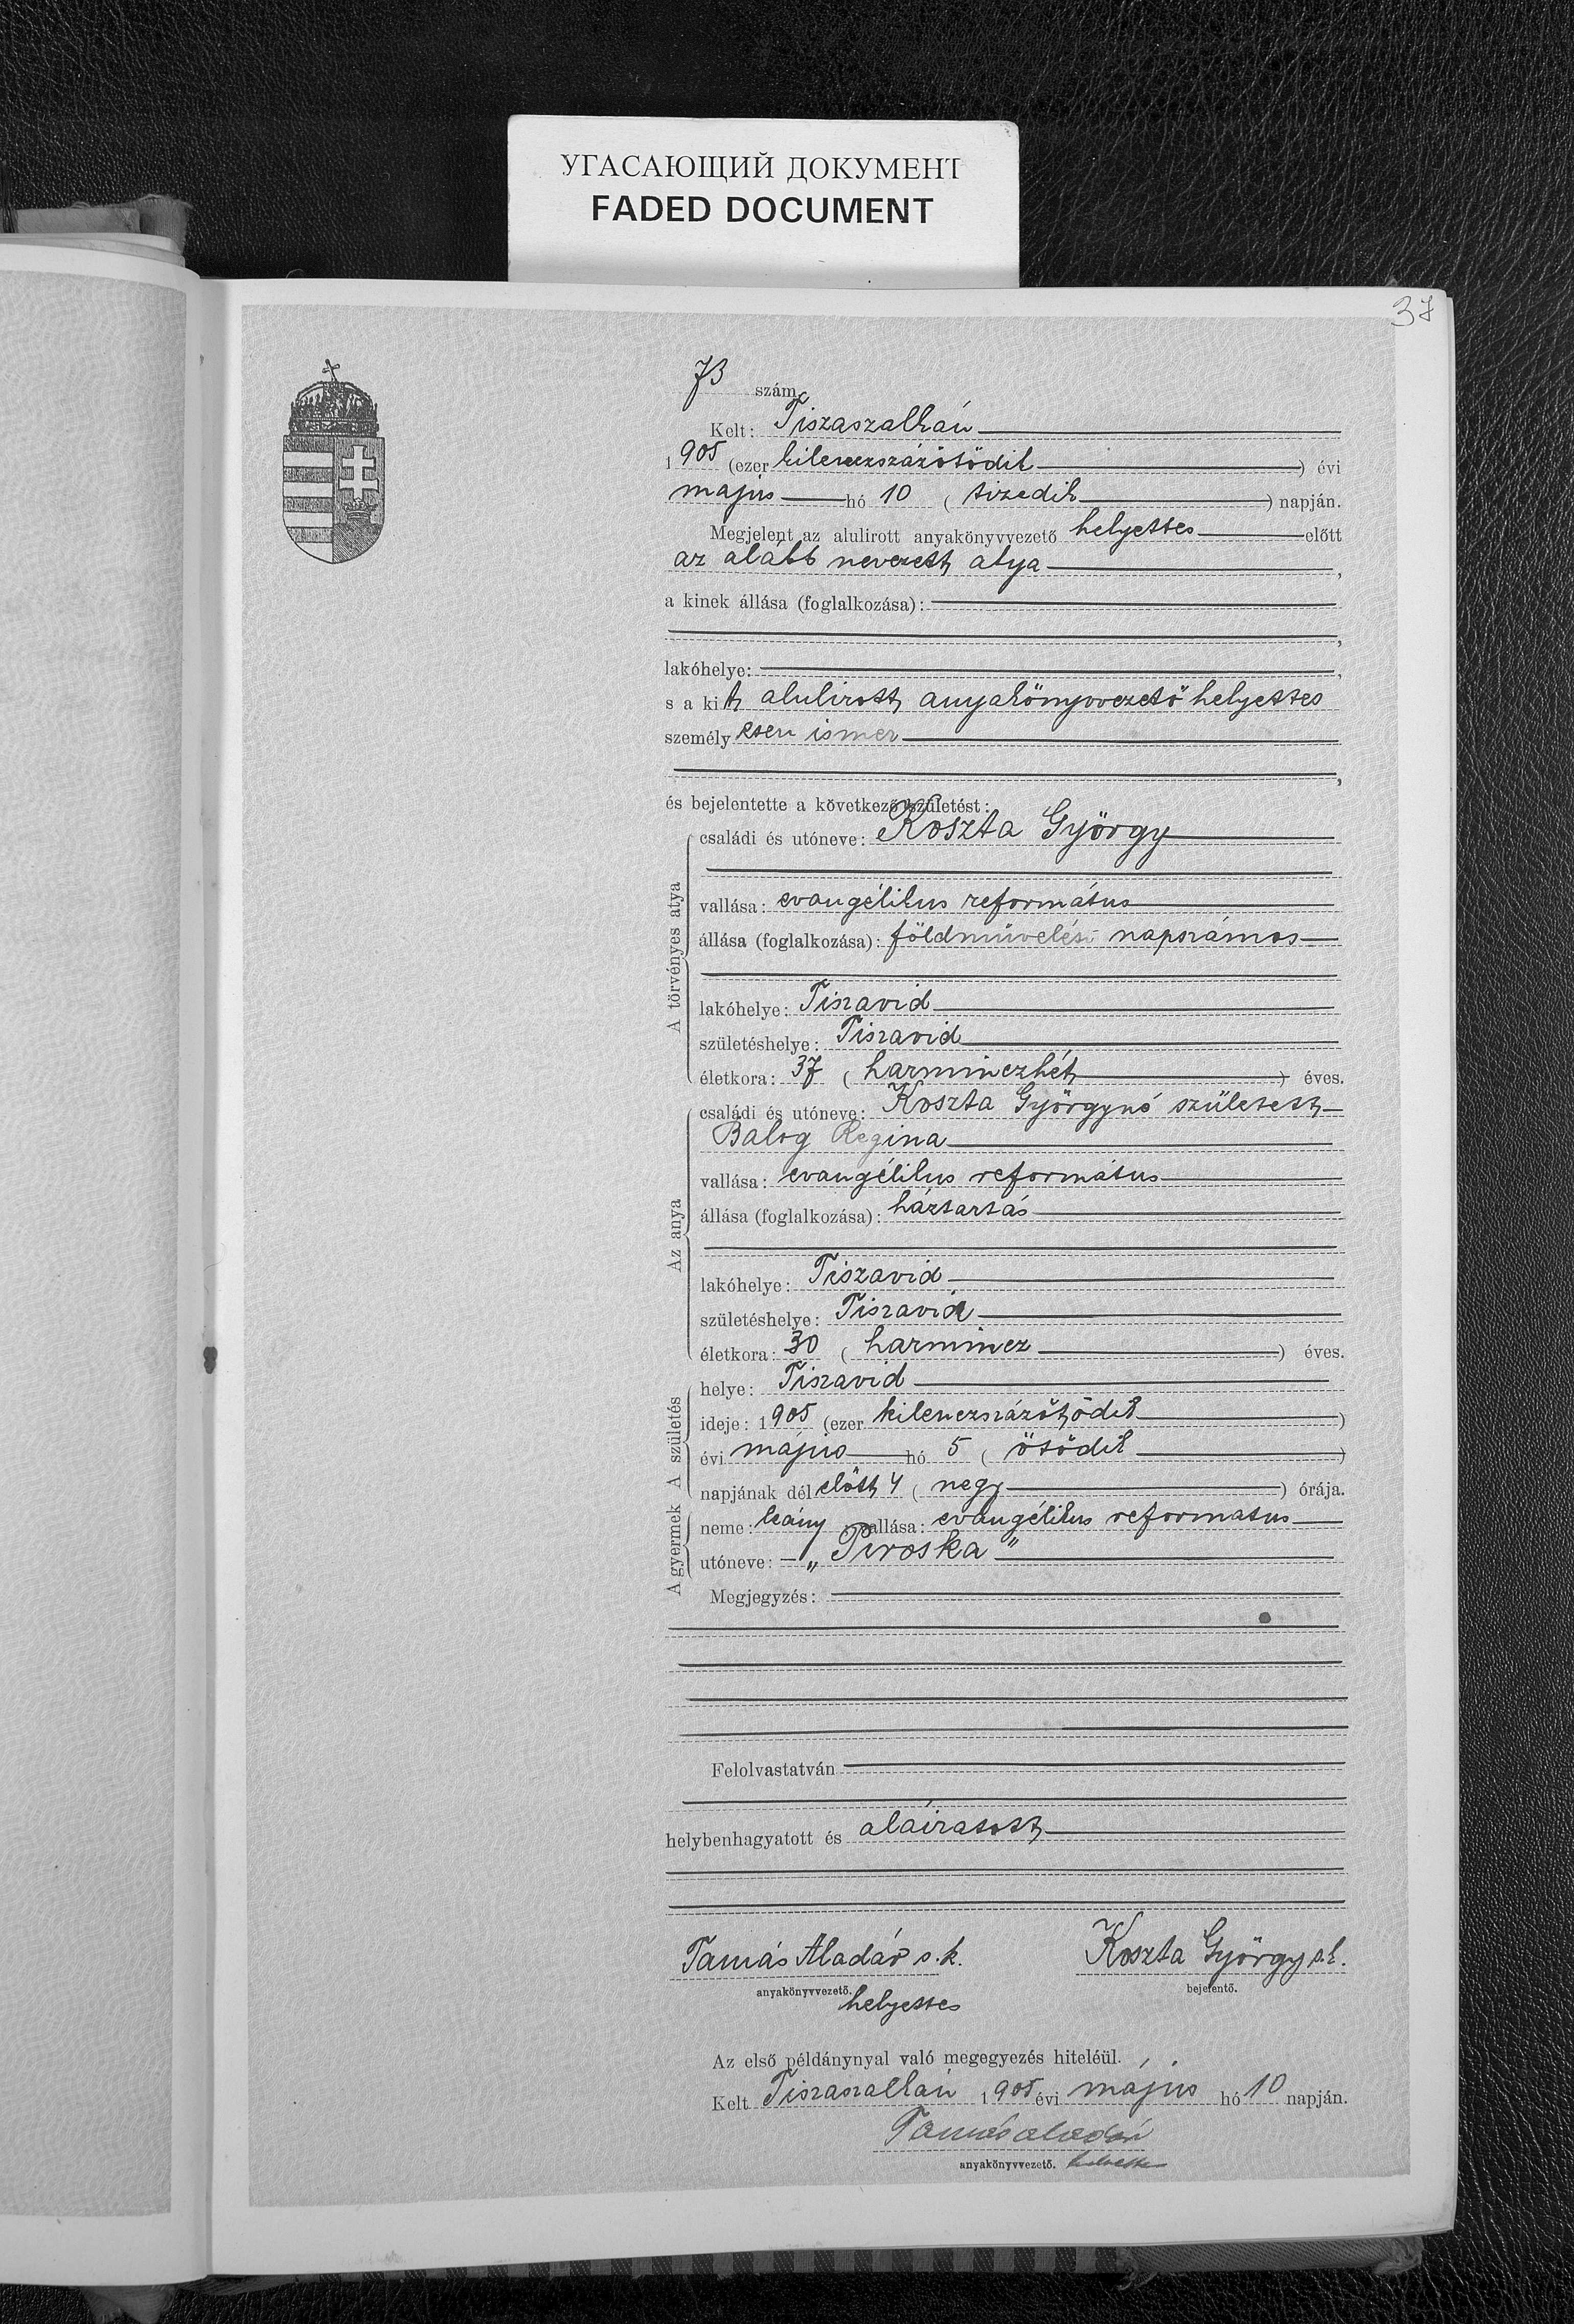 УГАСАЮЩИЙ ДОКУМЕНТ
FADED DOCUMENT
37
73 szám
Kelt: Tiszaszalkán
1905 (ezer kilenczszázötödik) évi
május hó 10 (tizedik) napján.
Megjelent az alulirott anyakönyvvezető helyettes előtt
az alább nevezett atya,
a kinek állása (foglalkozása):
,
lakóhelye: ,
s a kit alulirott anyakönyvvezető helyettes
személyesen ismer
,
és bejelentette a következő születést:
A törvényes atya
családi és utóneve: Koszta György
vallása: evangélikus református
állása (foglalkozása): földmüvelési napszámos
lakóhelye: Tiszavid
születéshelye: Tiszavid
életkora: 37 (harminczhét) éves.
Az anya
családi és utóneve: Koszta Györgyné született
Balog Regina
vallása: evangélikus református
állása (foglalkozása): háztartás
lakóhelye: Tiszavid
születéshelye: Tiszavid
életkora: 30 (harmincz) éves.
A születés
helye: Tiszavid
ideje: 1905 (ezer kilenczszázötödik)
évi május hó 5 (ötödik)
napjának dél előtt 4 (negy) órája.
A gyermek
neme: leány vallása: evangélikus reformatus
utóneve: – „Piroska"
Megjegyzés:
Felolvastatván
helybenhagyatott és aláiratott
Tamás Aladár s. k. Koszta György s. k.
anyakönyvvezető. bejelentő.
helyettes
Az első példánynyal való megegyezés hiteléül.
Kelt Tiszaszalkán 1905 évi május hó 10 napján.
Tamás Aladár
anyakönyvvezető. helyettes